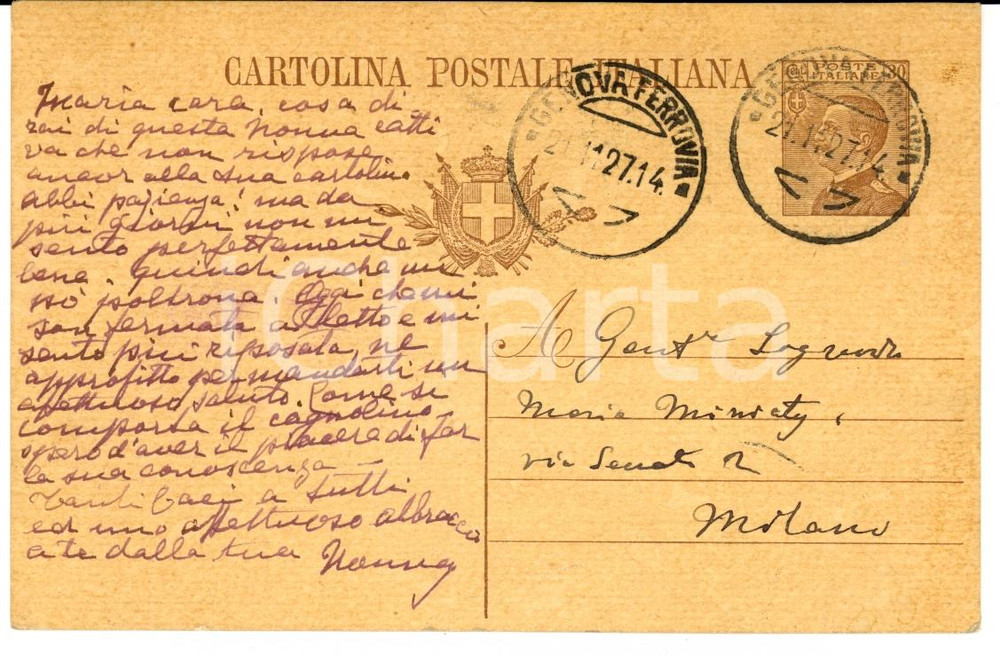 CARTOLINA POSTALE ITALIANA
POSTE
ITALIANE
30
GENOVA FERROVIA
21.11.27.14
GENOVA FERROVIA
21.11.27.14
Maria cara, cosa di
rai di questa Nonna catti
va che non rispose
ancor alla sua cartolina
abbi pazienza! ma da
più giorni non mi
sento perfettamente
bene. Quindi anche un
pò poltrona. Oggi che mi
son fermata a letto e mi
sento più riposata, ne
approfitto per mandarti un
affettuoso saluto. Come si
comporta il cagnolino
spero d'aver il piacere di far
la sua conoscenza
Tanti baci a tutti
ed uno affettuoso abbraccio
a te dalla tua Nonna
A Gent
Maria
via Senato 2
Milano
Charta